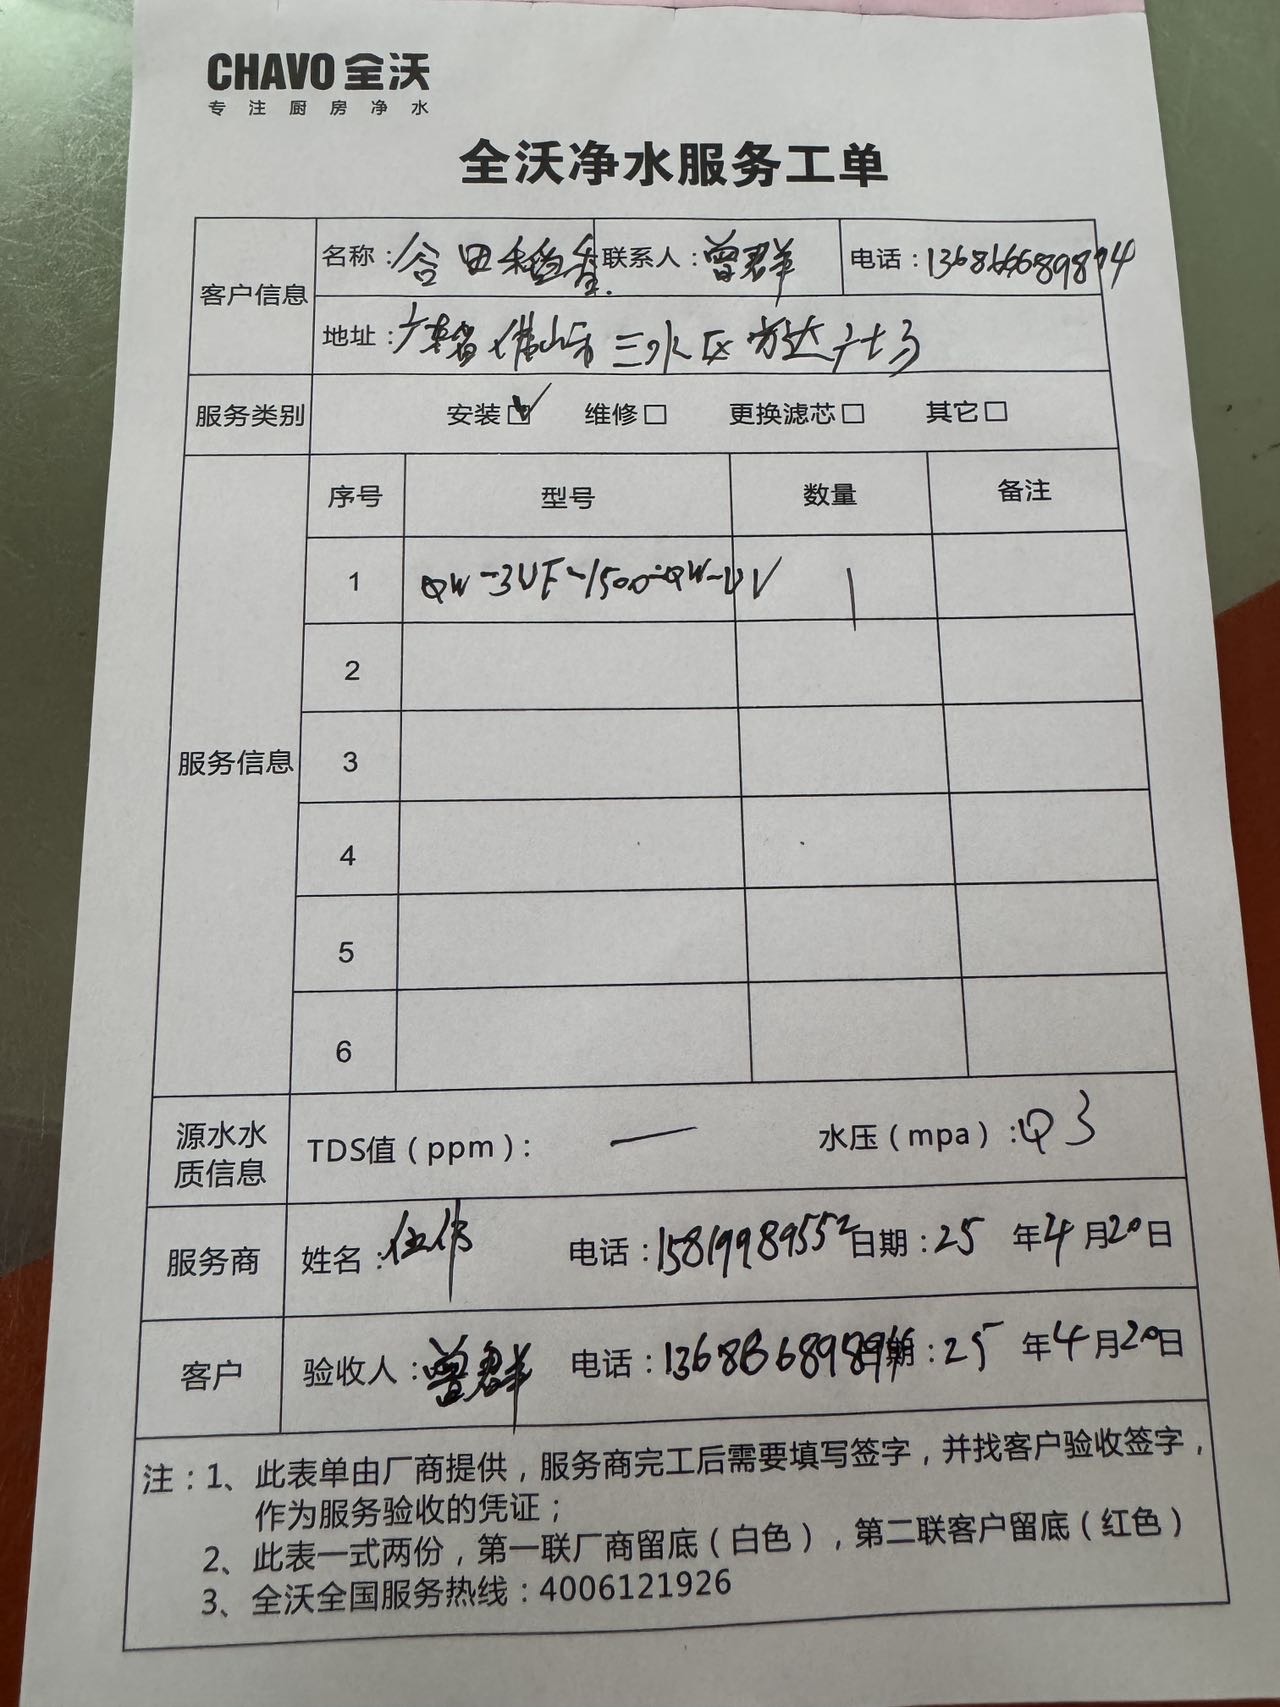 CHAVO 全沃
专注厨房净水
全沃净水服务工单
客户信息
名称：谷田稻香 联系人：曾群 电话：
地址：广东省佛山市三水区万达广场
服务类别 安装☑ 维修□ 更换滤芯□ 其它□
服务信息
序号 型号 数量 备注
1 QW-3UF-1500-QW-UV 1
2
3
4
5
6
源水水质信息 TDS值（ppm）： — 水压（mpa）:0.3
服务商 姓名：伍伟 电话：15819989552 日期：25 年4月20日
客户 验收人：曾群 电话： 日期：25 年4月20日
注：1、此表单由厂商提供，服务商完工后需要填写签字，并找客户验收签字，
作为服务验收的凭证；
2、此表一式两份，第一联厂商留底（白色），第二联客户留底（红色）
3、全沃全国服务热线：4006121926